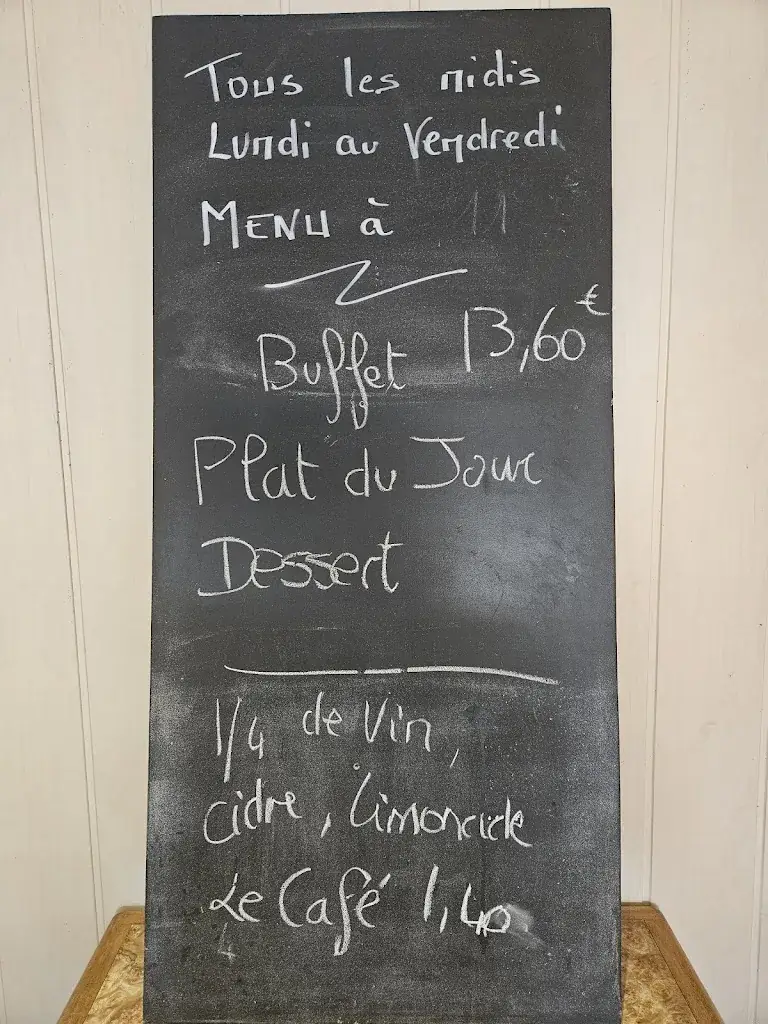 Tous les midis
Lundi au Vendredi
MENU à 11
Buffet 13,60€
Plat du Jour
Dessert
1/4 de Vin,
cidre, Limonade
Le Café 1,40